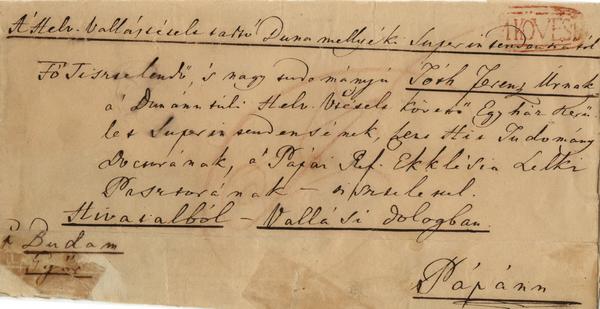 A' Helv. Vallástételt tartó Duna mellyéki Superintendentiától
KÖVESD
Fő Tiszteletű, 's nagy tudományú Tóth Ferenz Úrnak
a' Dunántúli Helv. Vtételt követő Egyház Kerü-
let Superintendensének, Isteni Tudomány
Doctorának, a' Pápai Ref. Ekklésia Lelki
Pasztorának – tisztelettel.
Hivatalból – Vallási dologban.
Budam
Győr
Pápánn